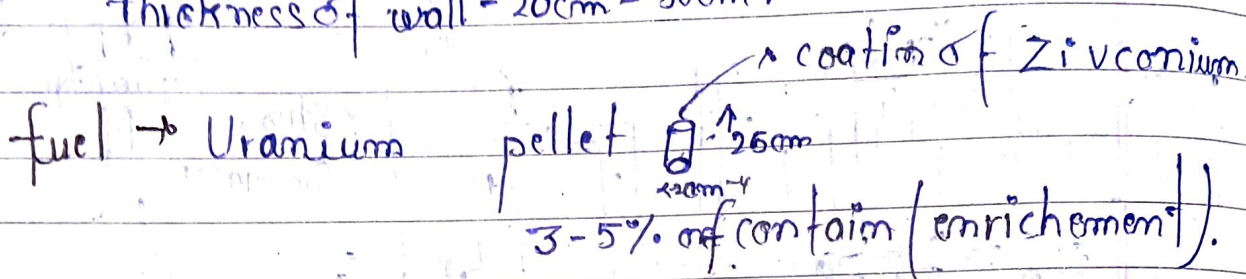 Thickness of wall - 20cm -
coatin of Zivconium
fuel → Uranium pellet 25cm
3-5% of contain (enrichement).